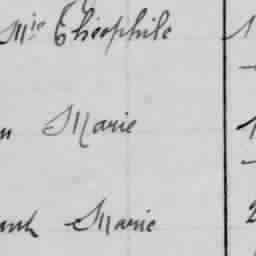 Mie Théophile 1
Marie 1
Marie 2